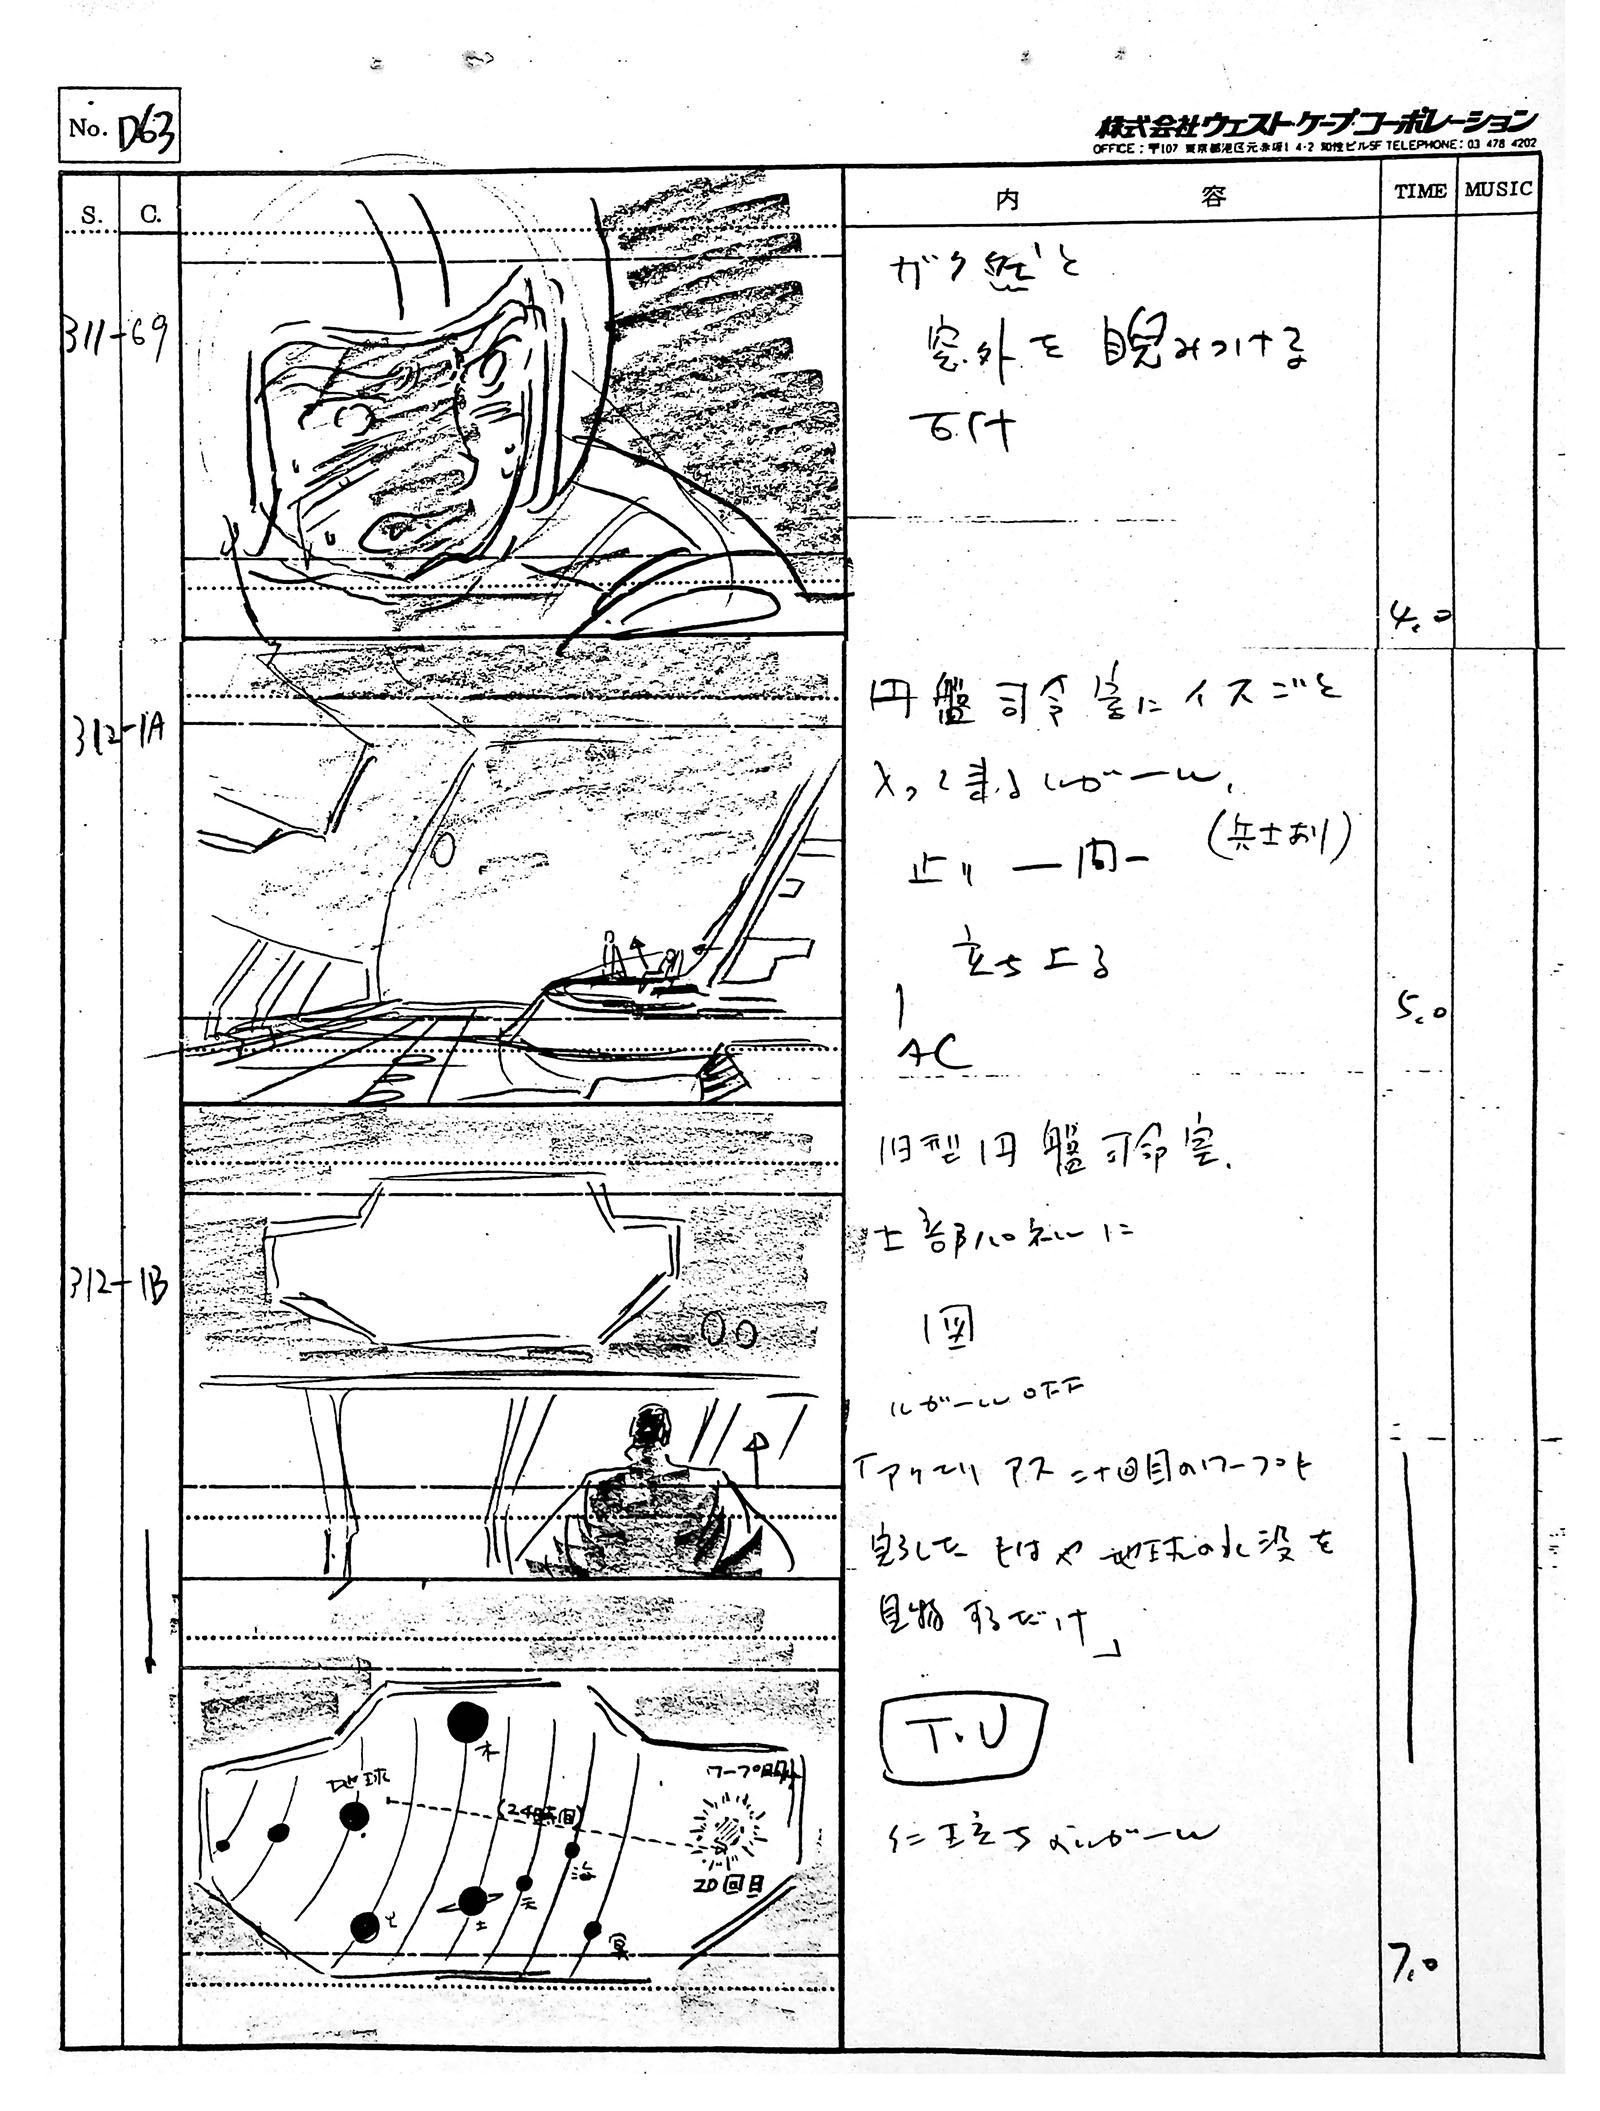 No. D63
株式会社ウェスト・ケープ・コーポレーション
OFFICE：〒107 東京都港区元赤坂1 4-2 知性ビル5F TELEPHONE：03 478 4202
S. C. 内容 TIME MUSIC
311-69
ガク然と
窓外を睨みつける
4.0
312-1A
円盤司令室にイスごと
入って来るルガール、
(兵士あり)
止り 一間一
立ち上る
AC
5.0
312-1B
旧型円盤司令室、
上部パネルに
図
ルガールOFF
「アクエリアス二十回目のワープを
完了した もはや地球の水没を
見物するだけ」
T.U
仁王立ちのルガール
7.0
木
地球
ワープ明け
(24時間)
海
20回目
天
土
火
冥